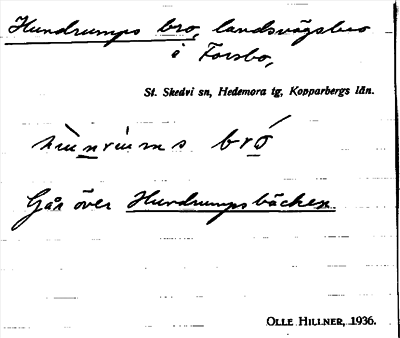 Hundrumps bro, landsvägsbro
i Forsbo,
St. Skedvi sn, Hedemora tg, Kopparbergs län.
hùnrùms bró
Går över Hundrumpsbäcken.
OLLE HILLNER, 1936.